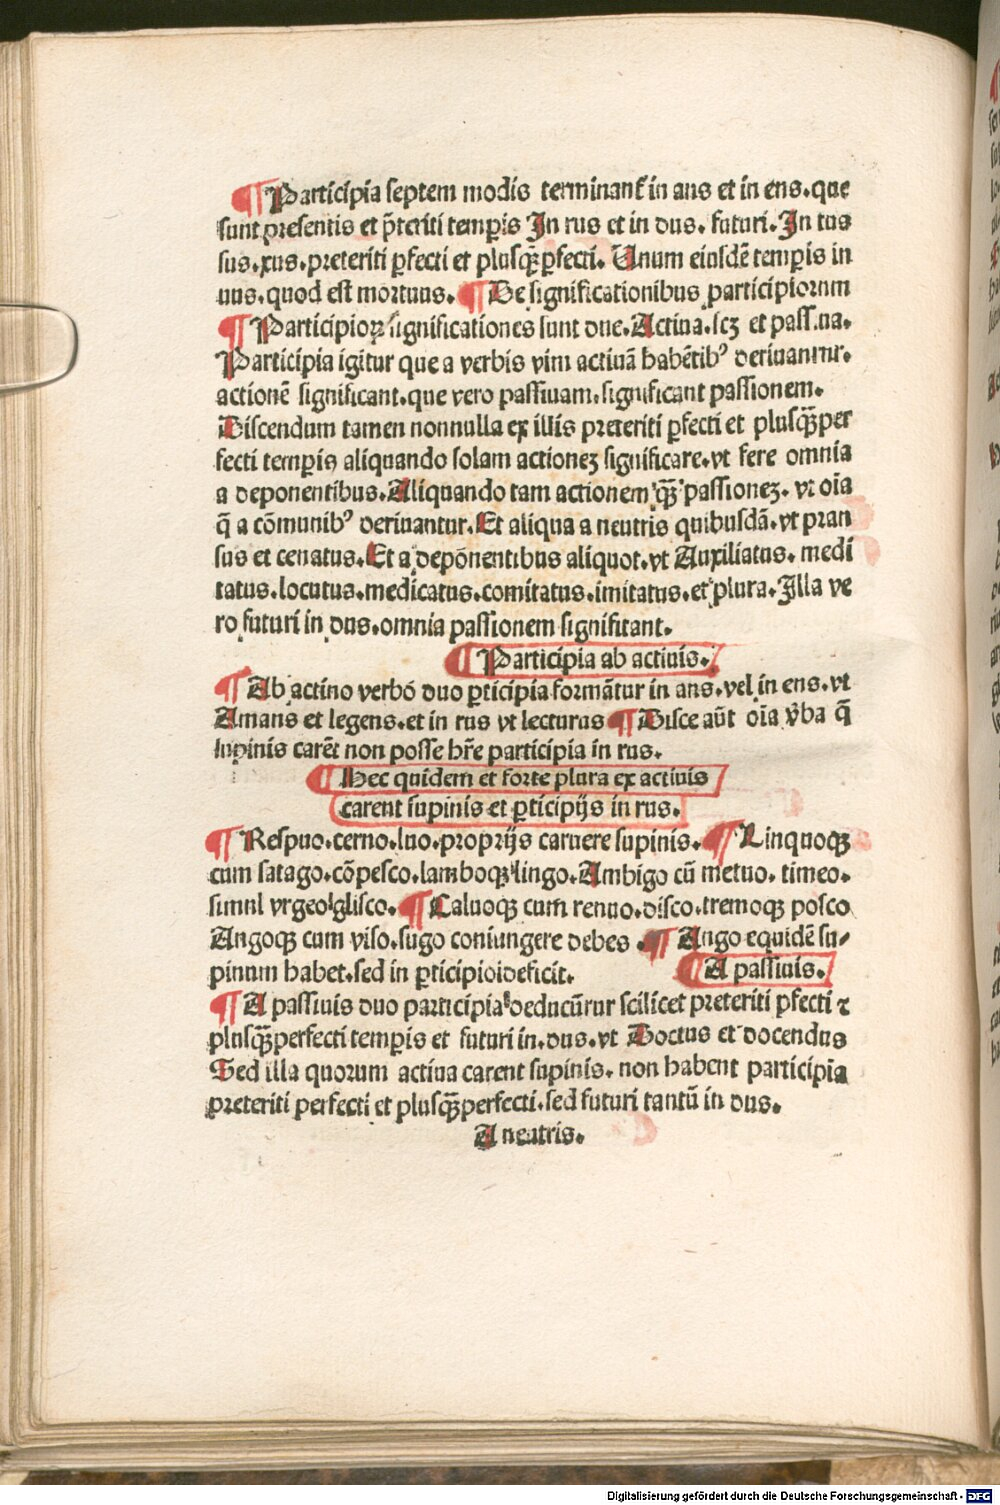 ¶ Participia septem modis terminant᷑ in ans et in ens. que
sunt presentis et p̄teriti temp̲is In rus et in dus. futuri. In tus
sus. xus. preteriti p̲fecti et plusq̄ꝫ p̲fecti. Unum eiusdē temp̲is in
uus. quod est mortuus. ¶ De significationibus participiorum
¶ Participioꝝ significationes sunt due. Actiua. scꝫ et passiua.
Participia igitur que a verbis vim actiuā habētibꝰ deriuantur.
actionē significant. que vero passiuam. significant passionem.
Discendum tamen nonnulla ex illis preteriti p̲fecti et plusq̄ꝫper
fecti temp̲is aliquando solam actioneꝫ significare. vt fere omnia
a deponentibus. Aliquando tam actionem q̄ꝫ passioneꝫ. vt oīa
q̄ a cōmunibꝰ deriuantur. Et aliqua a neutris quibusdā. vt pran
sus et cenatus. Et a deponentibus aliquot. vt Auxiliatus. medi
tatus. locutus. medicatus. comitatus. imitatus. et plura. Illa ve
ro futuri in dus. omnia passionem significant.
Participia ab actiuis.
¶ Ab actiuo verbo duo p̲ticipia formātur in ans. vel in ens. vt
Amans et legens. et in rus vt lecturus ¶ Disce aūt oīa v̄ba q̄
supinis carēt non posse hr̄e participia in rus.
Hec quidem et forte plura ex actiuis
carent supinis et p̲ticipijs in rus.
¶ Respuo. cerno. luo. proprijs caruere supinis. ¶ Linquoqꝫ
cum satago. cōpesco. lamboqꝫ lingo. Ambigo cū metuo. timeo.
simul vrgeo glisco. ¶ Caluoqꝫ cum renuo. disco. tremoqꝫ posco
Angoqꝫ cum viso. sugo coniungere debes. ¶ Ango equidē su/
pinum habet. sed in p̲ticipio deficit.
A passiuis.
¶ A passiuis duo participia deducūtur scilicet preteriti p̲fecti ⁊
plusq̄ꝫperfecti temp̲is et futuri in. dus. vt Doctus et docendus
Sed illa quorum actiua carent supinis. non habent participia
preteriti perfecti et plusq̄ꝫperfecti. sed futuri tantū in dus.
A neutris.
Digitalisierung gefördert durch die Deutsche Forschungsgemeinschaft - DFG